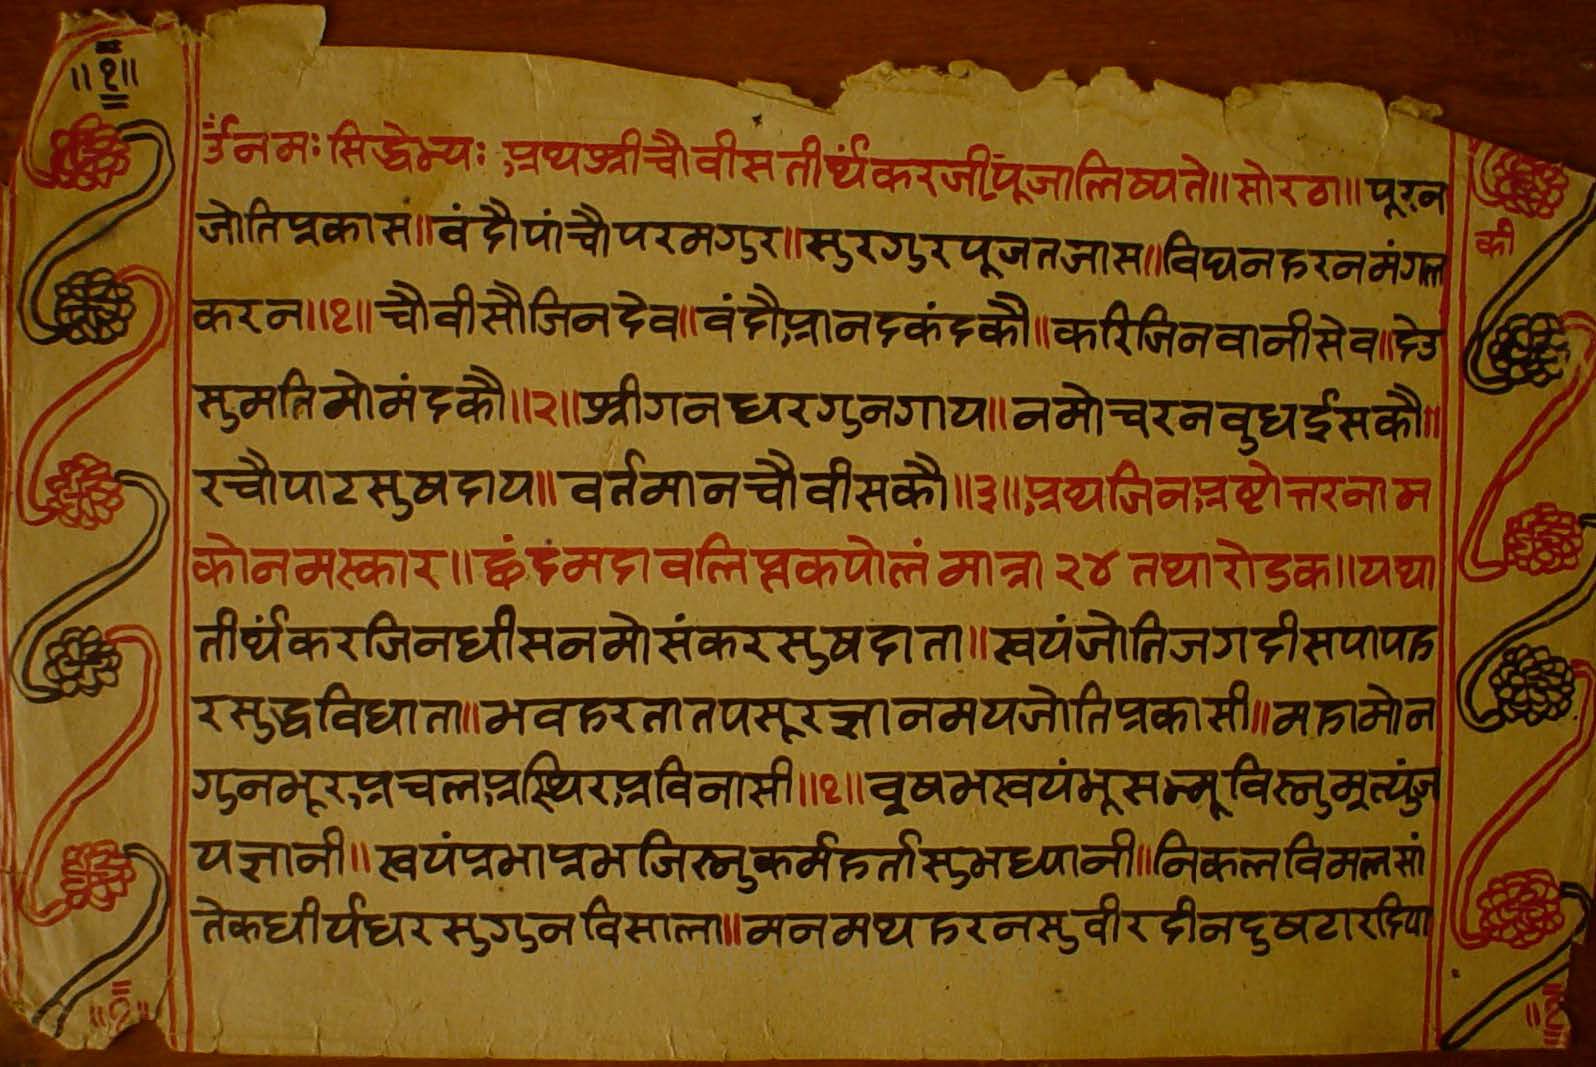 ॥१॥
ॐनमः सिद्धेभ्यः अथश्रीचौवीसतीर्थंकरजीपूजालिष्यते॥ सोरठा॥ पूरन
की
जोतिप्रकास॥ वंदौपांचौपरमगुर॥ सुरगुरपूजतजास॥ विघनहरनमंगल
करन॥१॥ चौवीसौजिनदेव॥ वंदौआनदकंदकौ॥ करिजिनवानीसेव॥ देउ
सुमतिमोमंदकौ॥२॥ श्रीगनधरगुनगाय॥ नमोचरनवुधईसकौ॥
रचौपाटसुषदाय॥ वर्तमानचौवीसकौ॥३॥ अथजिनअष्टोत्तरनाम
कोनमस्कार॥ छंदमदावलिप्तकपोलंमात्रा २४ तथारोडक॥ यथा
तीर्थंकरजिनधीसनमोसंकरसुषदाता॥ स्वयंजोतिजगदीसपापह
रसुद्धविधाता॥ भवहरतातपसूरज्ञानमयजोतिप्रकासी॥ महामोन
गुनभूरअचलअस्थिरअविनासी॥१॥ वृषभस्वयंभूसम्भूविस्नुमृत्युंज
यज्ञानी॥ स्वयंप्रभाप्रभजिस्नुकर्महर्तासुभध्यानी॥ निकलविमलसां
तेकधीर्यधरसुगुनविसाला॥ मनमथहरनसुवीरदीनदुषटारदिपा
॥१॥